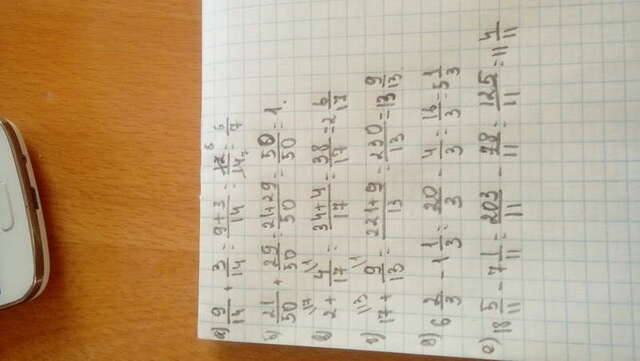 а) 9/14 + 3/14 = 9+3/14 = 12/14 = 6/7
б) 21/50 + 29/50 = 21+29/50 = 50/50 = 1.
в) 2 + 4/17 = 34+4/17 = 38/17 = 2 6/17
г) 17 + 9/13 = 221+9/13 = 230/13 = 13 9/13
д) 6 2/3 - 1 1/3 = 20/3 - 4/3 = 16/3 = 5 1/3
е) 18 5/11 - 7 1/11 = 203/11 - 78/11 = 125/11 = 11 4/11